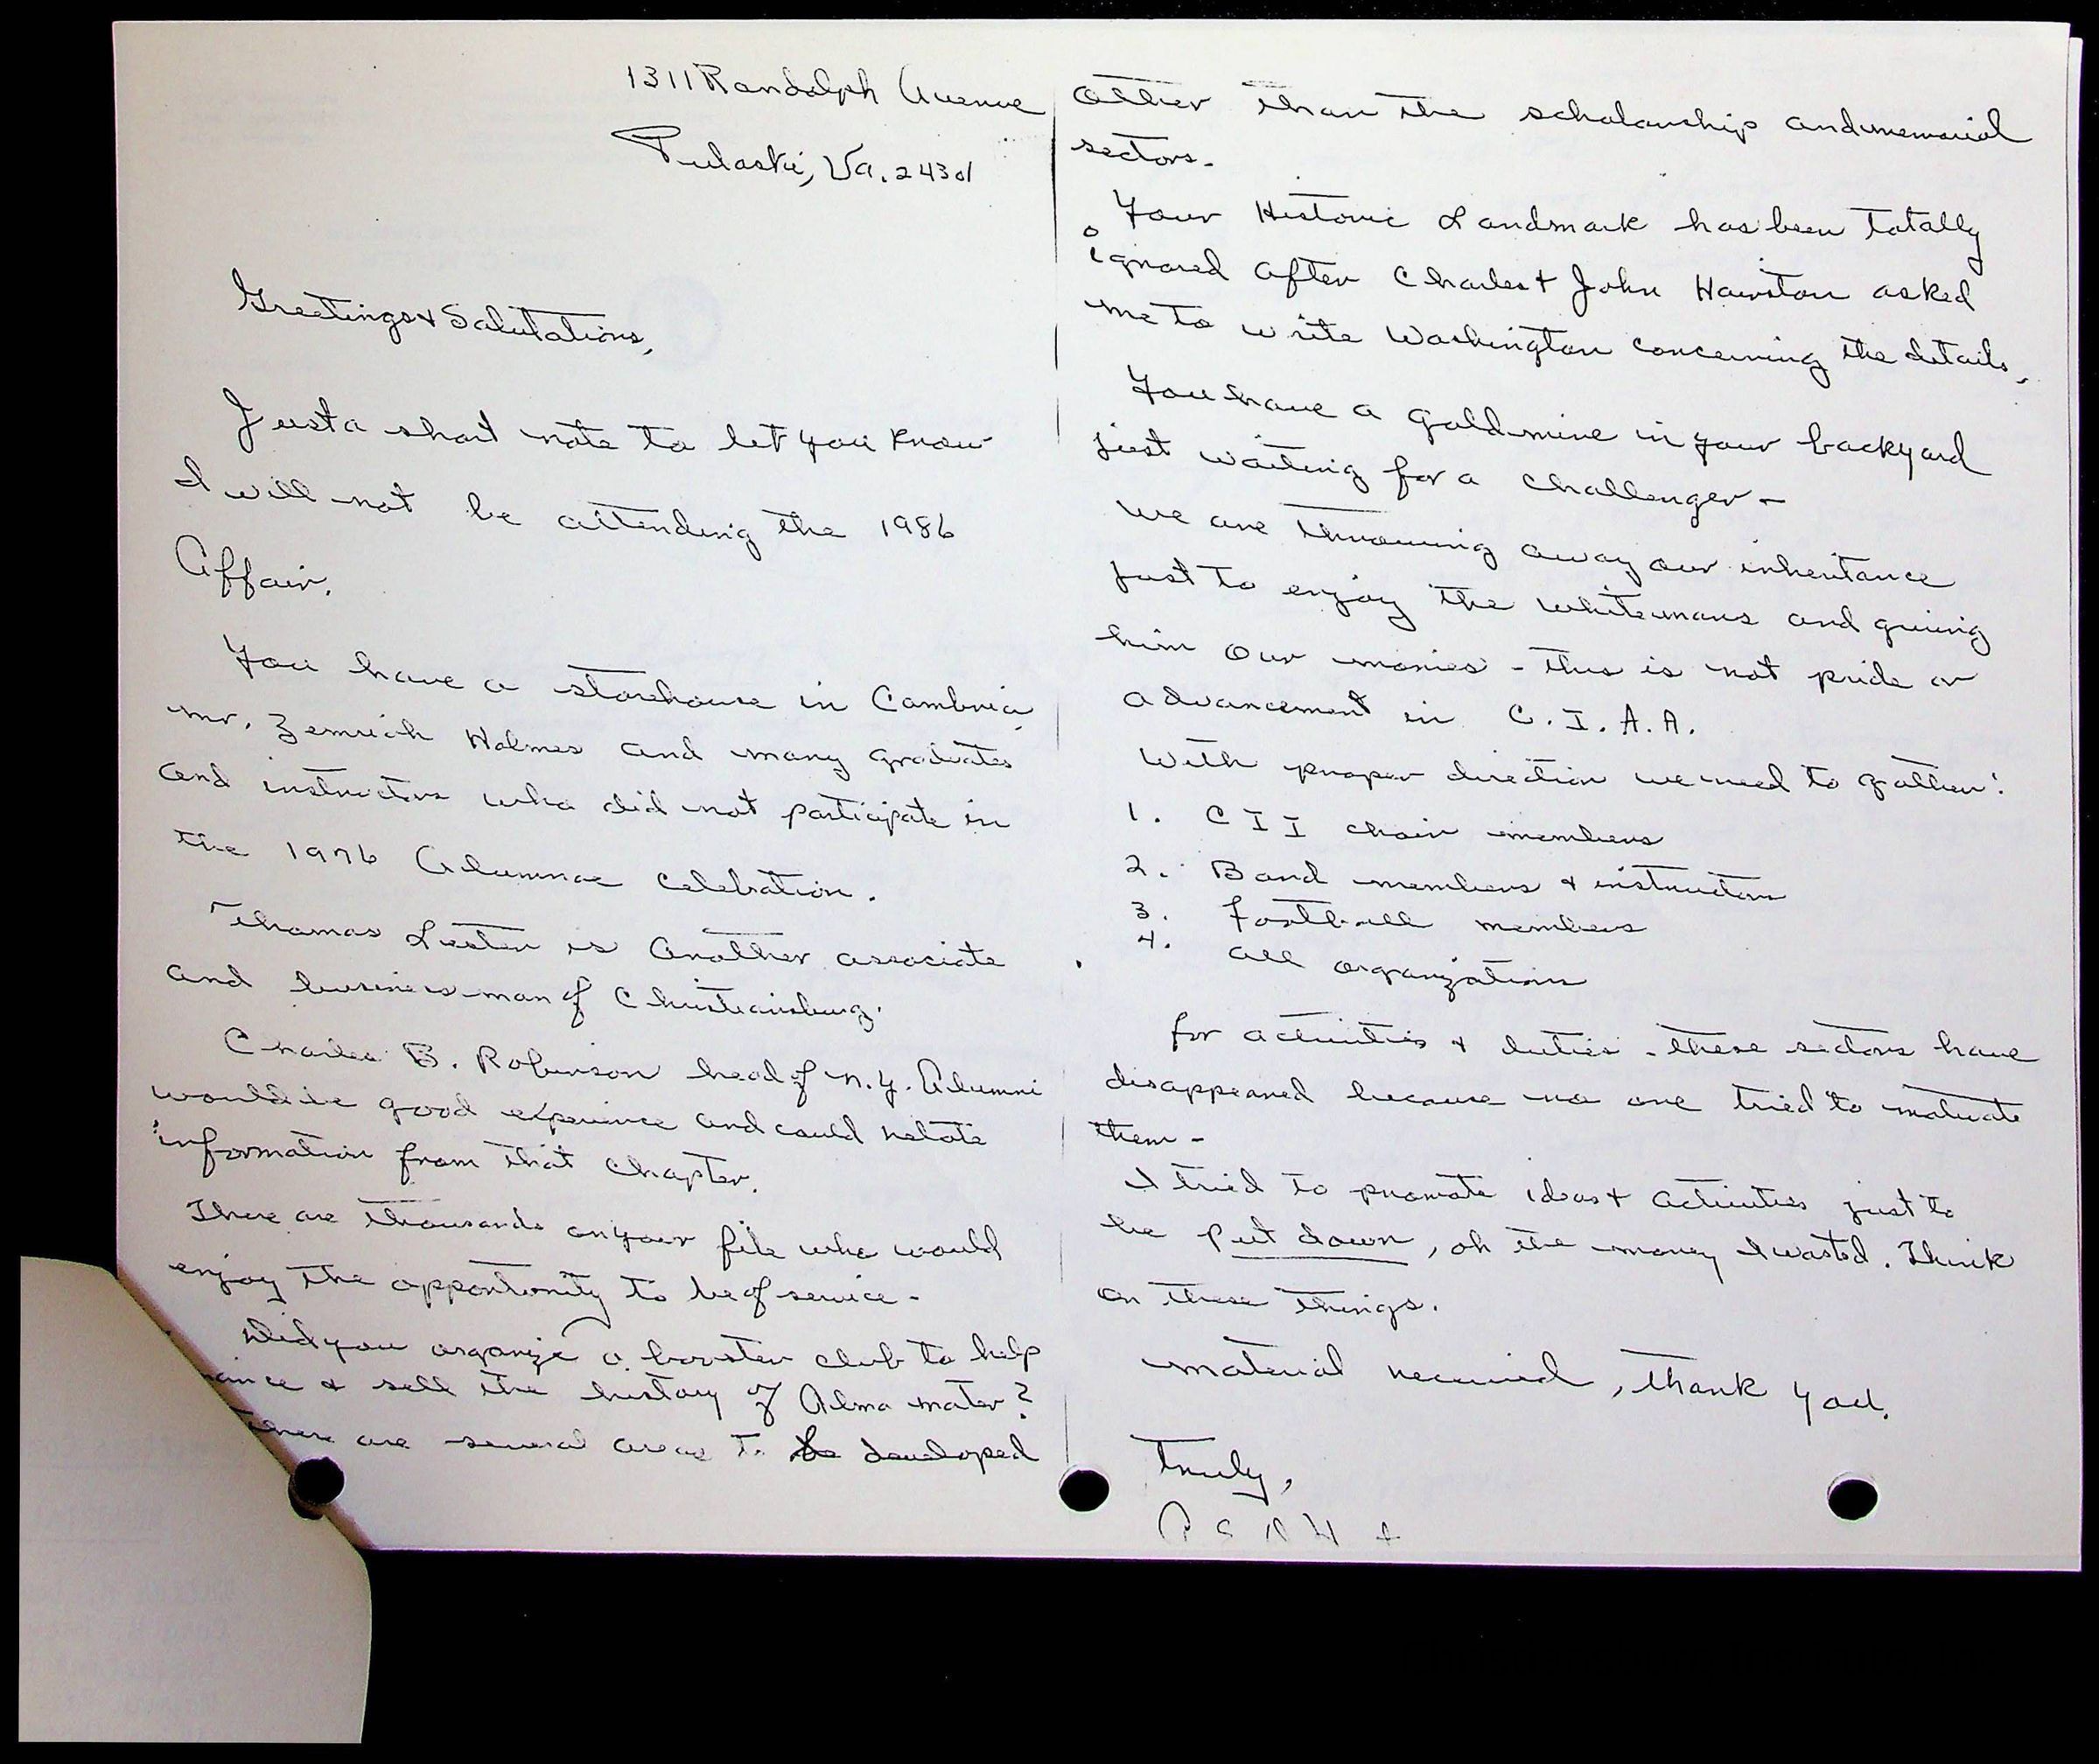 1311 Randolph Avenue
Pulaski, Va. 24301
Greetings & Salutations,
Just a short note to let you know
I will not be attending the 1986
Affair.
You have a storehouse in Cambria,
Mr. Zemriah Holmes and many graduates
and instructors who did not participate in
the 1976 Alumnae Celebration.
Thomas Lester is another associate
and business-man of Christiansburg.
Charles B. Robinson head of N.Y. Alumni
would be good experience and could relate
information from that chapter.
There are thousands on your file who would
enjoy the opportunity to be of service -
Did you organize a booster club to help
& sell the history of Alma mater?
There are several areas to be developed
other than the scholarship and memorial
sectors -
Your Historic Landmark has been totally
ignored after Charles & John Hairston asked
me to write Washington concerning the details,
You have a gold-mine in your backyard
just waiting for a challenger -
We are throwing away our inheritance
just to enjoy the whitemans and giving
him our monies - this is not pride or
advancement in C.I.A.A.
With proper direction we need to gather:
1. CII choir members
2. Band members & instructors
3. Football members
4. all organizations
for activities & duties - these sectors have
disappeared because no one tried to motivate
them -
I tried to promote ideas & activities just to
be put down, oh the money I wasted. Think
on these things.
material received, thank you.
Truly,